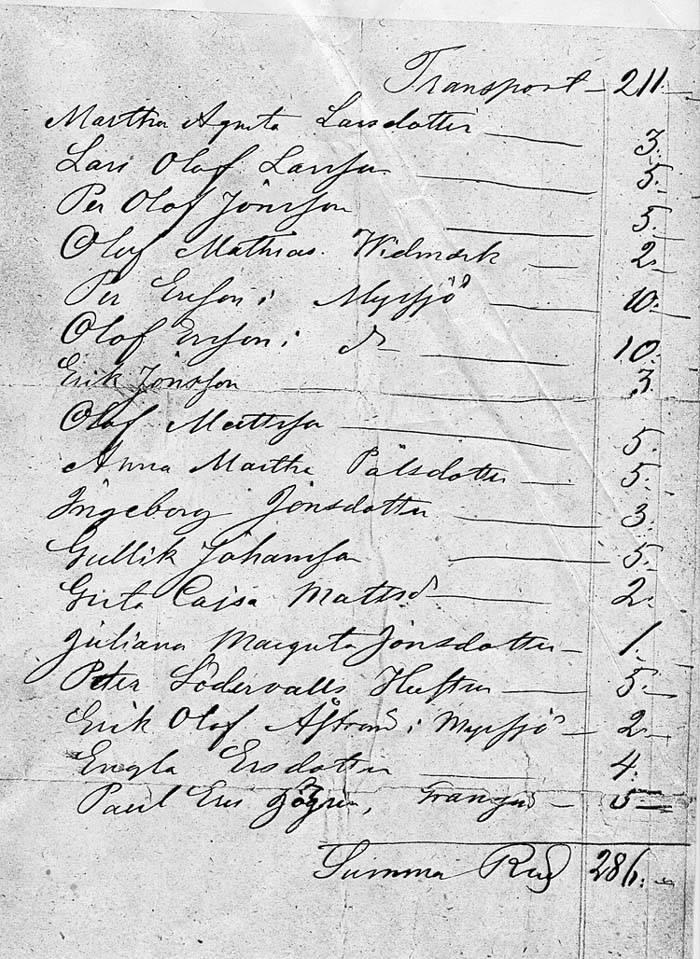 Transport - 211.
Martha Agneta Larsdotter 3.
Lars Olof Larsson 5.
Per Olof Jönsson 5.
Olof Mathias Widmark 2.
Per Ersson i Myssjö 10.
Olof Ersson i d 10.
Erik Jönsson 3.
Olof Mattsson 5.
Anna Martha Pålsdotter 5.
Ingeborg Jönsdotter 3.
Gullik Johansson 5.
Greta Cajsa Matsd 2.
Juliana Margreta Jönsdotter - 1.
Peter Södervalls 5.
Erik Olof Åström i Myssjö - 2.
Engla Ersdotter 4.
Paul Eric - 5
Summa 286.